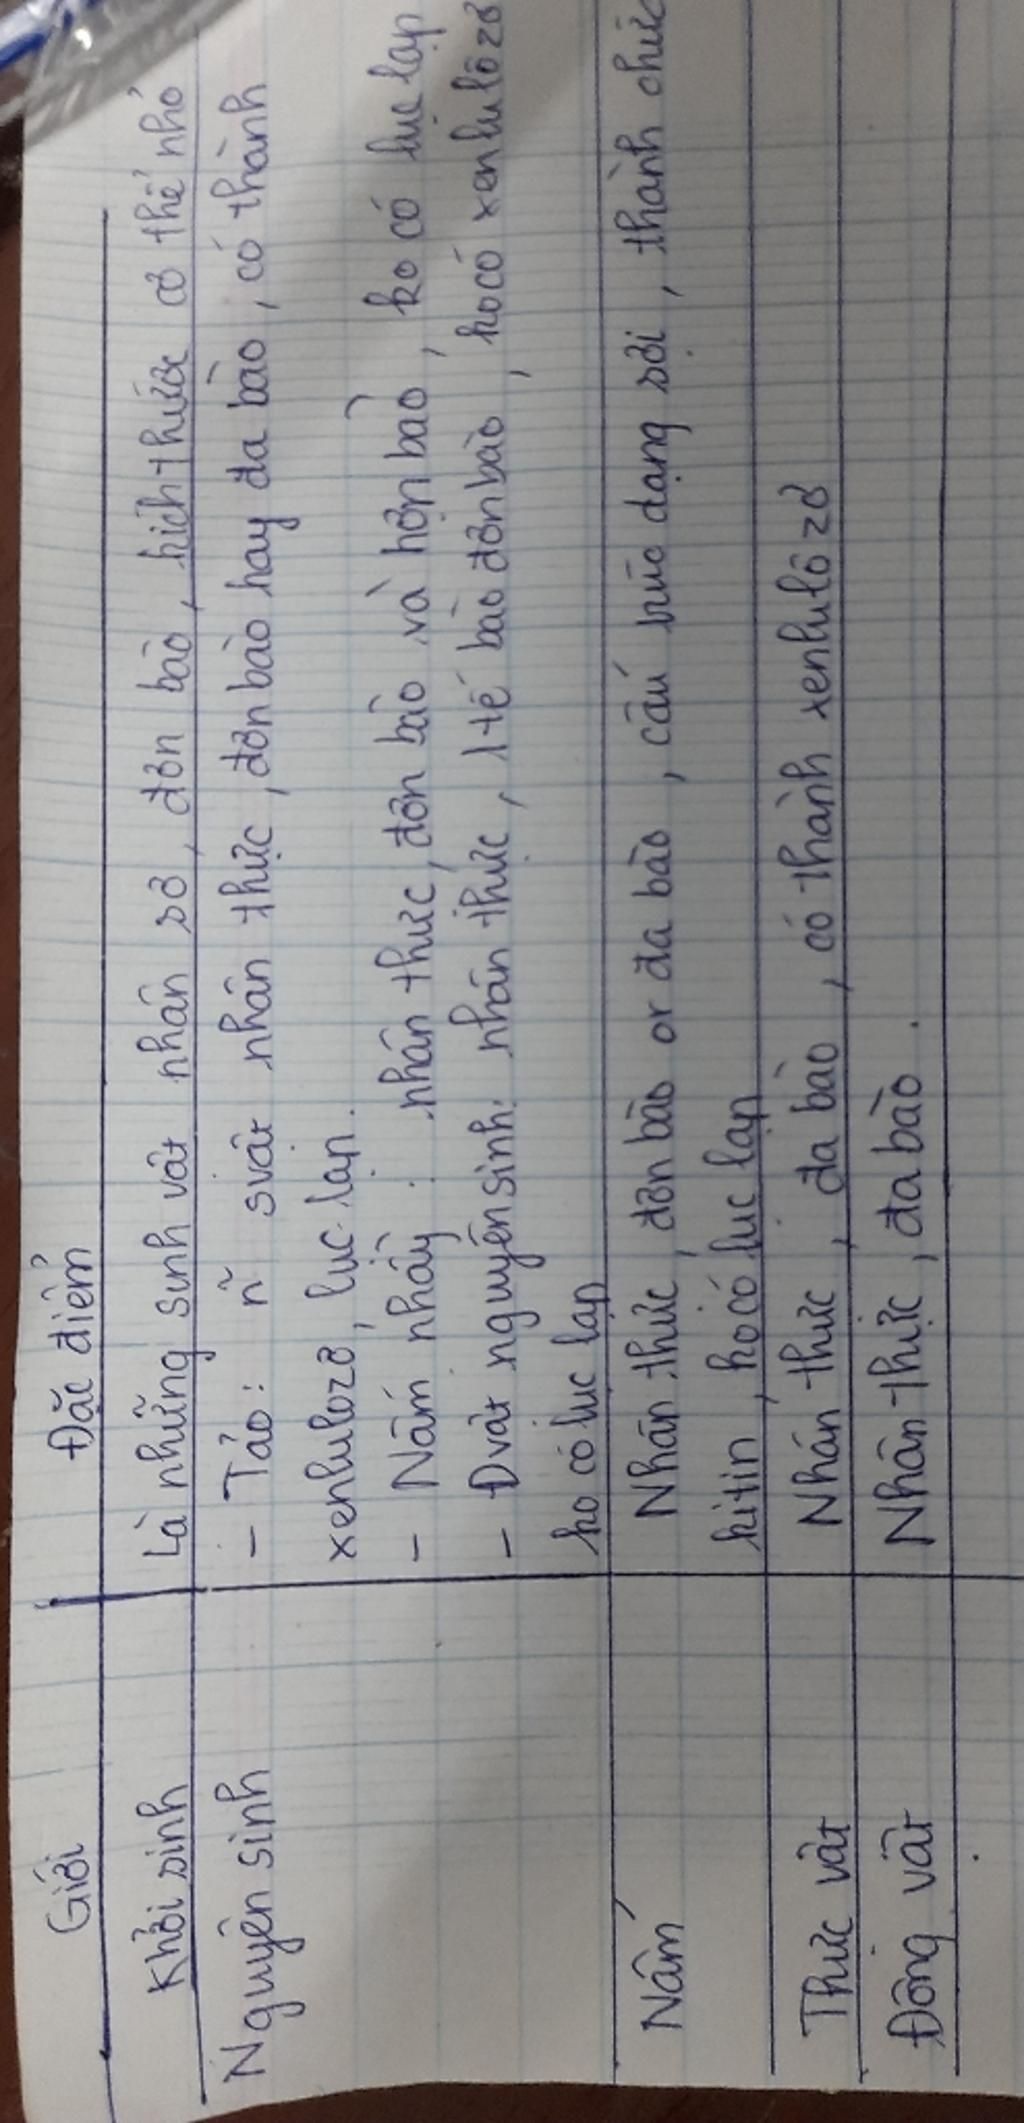 Giới Đặc điểm
Khởi sinh Là những sinh vật nhân sơ, đơn bào, kích thước cơ thể nhỏ
Nguyên sinh - Tảo: ñ svật nhân thực, đơn bào hay đa bào, có thành
xenlulozơ, lục lạp.
- Nấm nhầy: nhân thực, đơn bào và hợp bào, ko có lục lạp
- Đvật nguyên sinh: nhân thực, 1 tế bào đơn bào, ko có xenlulôzơ
ko có lục lạp
Nấm Nhân thực, đơn bào or đa bào, cấu trúc dạng sợi, thành chức
kitin, ko có lục lạp
Thực vật Nhân thực, đa bào, có thành xenlulôzơ
Động vật Nhân thực, đa bào.